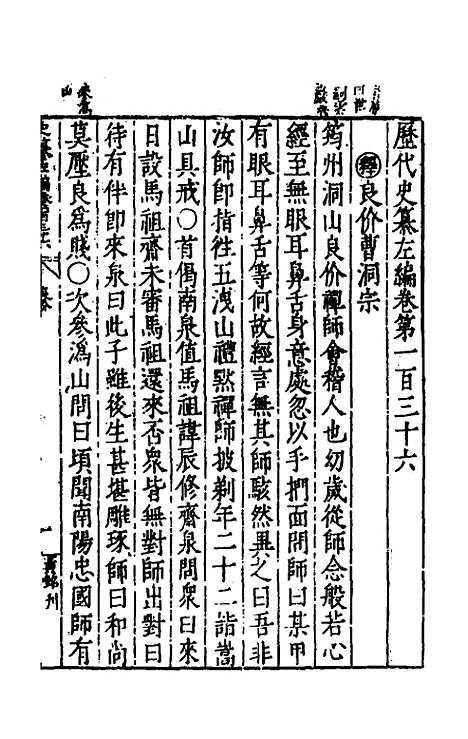 歷代史纂左編卷第一百三十六
釋良价曹洞宗
筠州洞山良价禪師會稽人也幼歲從師念般若心
經至無眼耳鼻舌身意處忽以手捫面問師曰某甲
有眼耳鼻舌等何故經言無其師駭然異之曰吾非
汝師即指徃五洩山禮黙禪師披剃年二十二詣嵩
山具戒○首偈南泉值馬祖諱辰修齋泉問衆曰來
日設馬祖齋未審馬祖還來否衆皆無對師出對曰
待有伴即來泉曰此子雖後生甚堪雕琢師曰和尚
莫壓良爲賤○次參潙山問曰頃聞南陽忠國師有